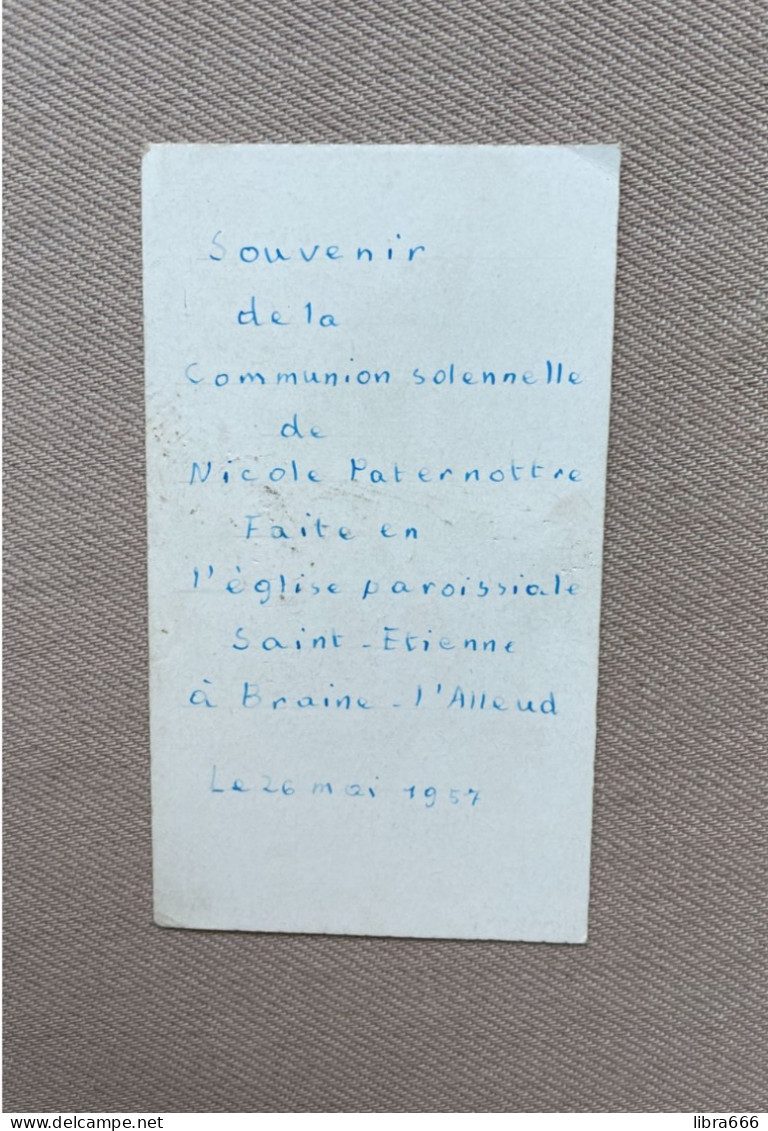 Souvenir
de la
Communion solennelle
de
Nicole Paternottre
Faite en
l'église paroissiale
Saint-Etienne
à Braine-l'Alleud
Le 26 mai 1957
delcampe.net
libra666